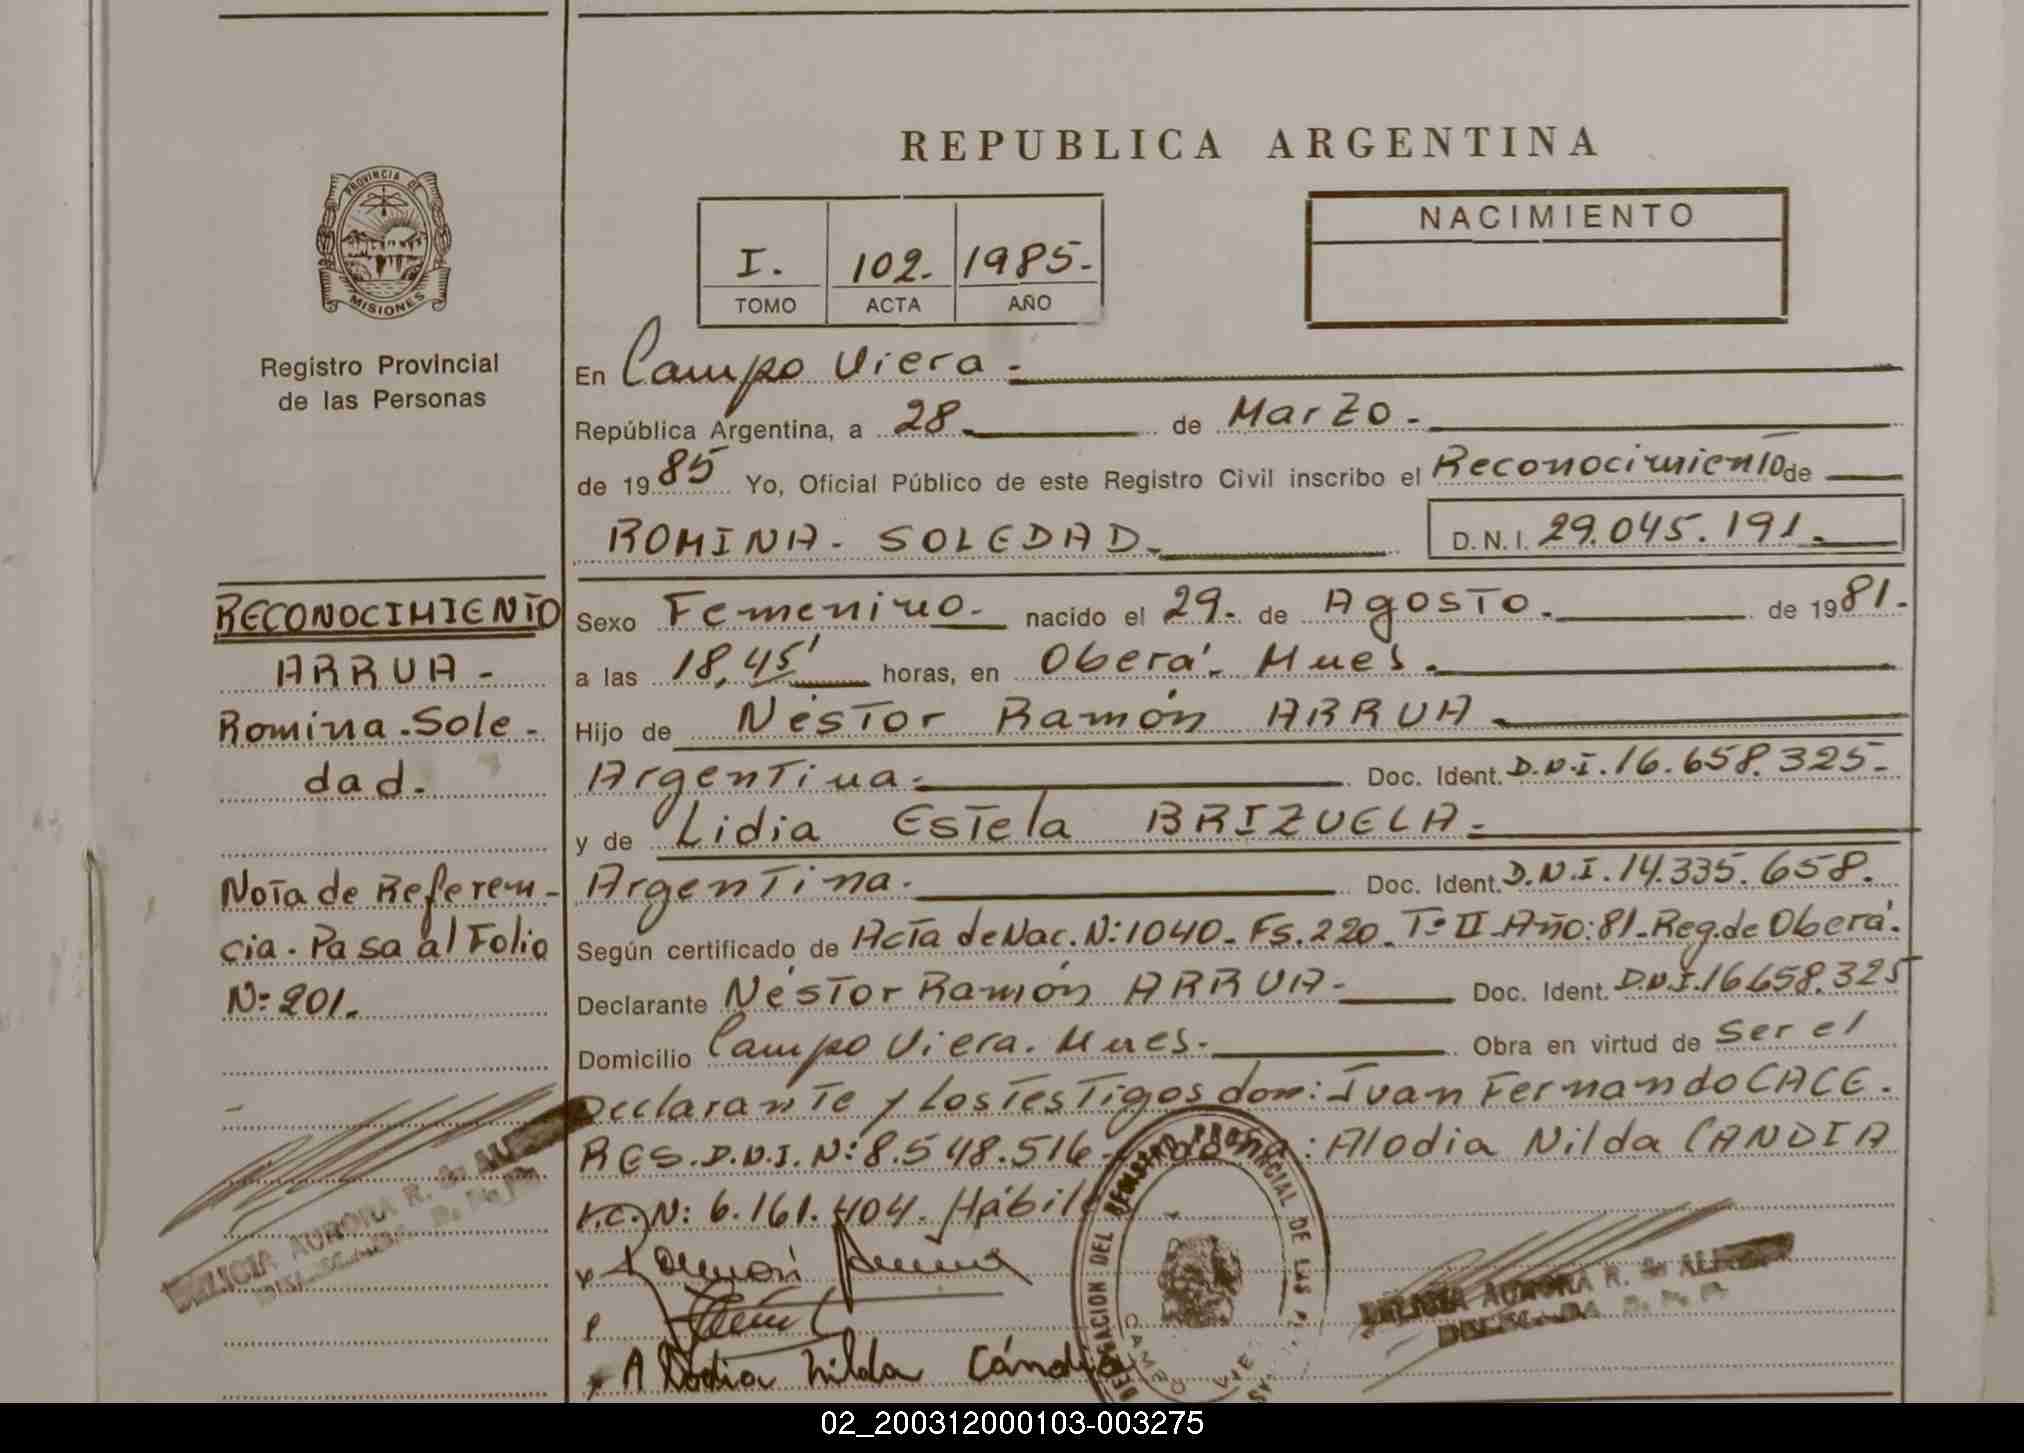 REPUBLICA ARGENTINA
PROVINCIA DE
MISIONES
Registro Provincial
de las Personas
I. 102. 1985.
TOMO ACTA AÑO
NACIMIENTO
En Campo Viera.
República Argentina, a 28 de Marzo.
de 1985 Yo, Oficial Público de este Registro Civil inscribo el Reconocimiento de
ROMINA- SOLEDAD.
D.N.I. 29.045.191.
RECONOCIMIENTO
ARRUA-
Romina.Sole-
dad.
Nota de Referen-
cia. Pasa al Folio
N: 201.
Sexo Femenino. nacido el 29. de Agosto. de 1981.
a las 18,45' horas, en Oberá. Mnes.
Hijo de Néstor Ramón ARRUA
Argentina. Doc. Ident. D.N.I. 16.658.325.
y de Lidia Estela BRIZUELA.
Argentina. Doc. Ident. D.N.I. 14.335.658.
Según certificado de Acta de Nac. N: 1040. Fs. 220. Tº II. Año: 81. Reg. de Oberá.
Declarante Néstor Ramón ARRUA. Doc. Ident. D.N.I. 16.658.325
Domicilio Campo Viera. Mnes. Obra en virtud de Ser el
Declarante y los Testigos don: Juan Fernando CACE.
RES. D.N.I. N: 8.548.516 : Alodia Nilda CANDIA
N: 6.161.404. Hábil
Ramón
Alodia Nilda Cándia
DELEGACION DEL REGISTRO PROVINCIAL DE LAS
AURORA R.
AURORA R.
02_200312000103-003275